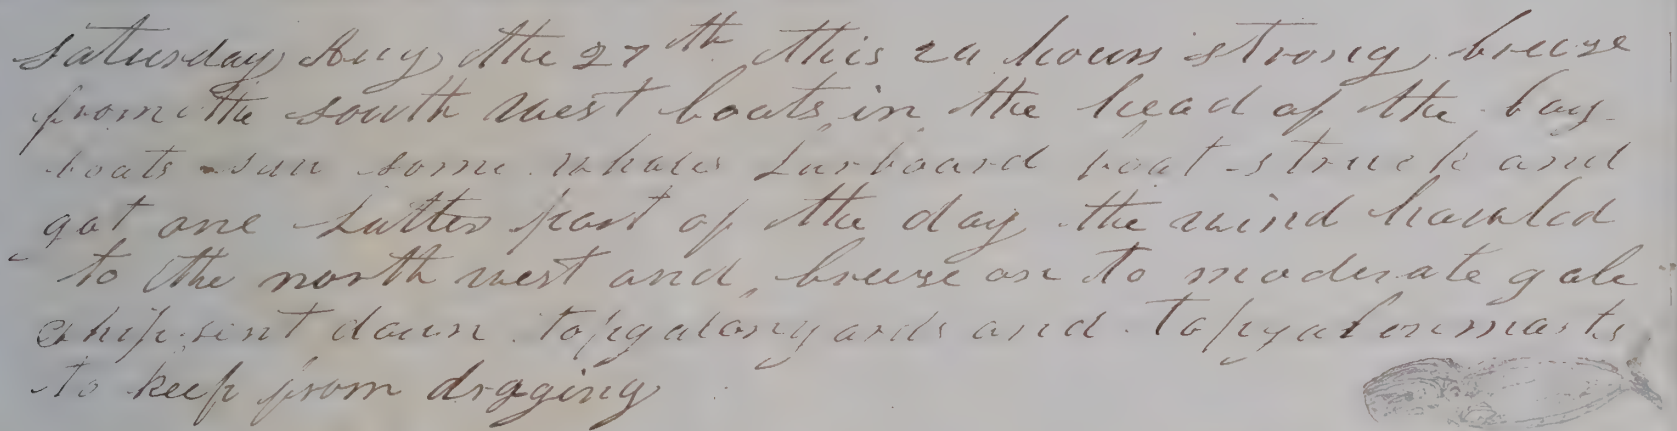 Saturday Aug the 27th this 24 hours strong breeze
from the south west boats in the head of the bay
boats saw some whales Larboard boat struck and
got one Latter part of the day the wind hauled
to the north west and breeze on to moderate gale
Ship sent down topgalonyards and topgalonmasts
to keep from draging